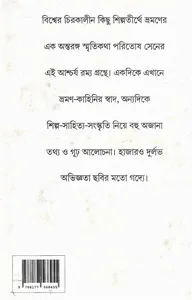 বিশ্বের চিরকালীন কিছু শিল্পতীর্থে ভ্রমণের
এক অন্তরঙ্গ স্মৃতিকথা পরিতোষ সেনের
এই আশ্চর্য রম্য গ্রন্থে। একদিকে এখানে
ভ্রমণ-কাহিনির স্বাদ, অন্যদিকে
শিল্প-সাহিত্য-সংস্কৃতি নিয়ে বহু অজানা
তথ্য ও গূঢ় আলোচনা। হাজারও দুর্লভ
অভিজ্ঞতা ছবির মতো গদ্যে।